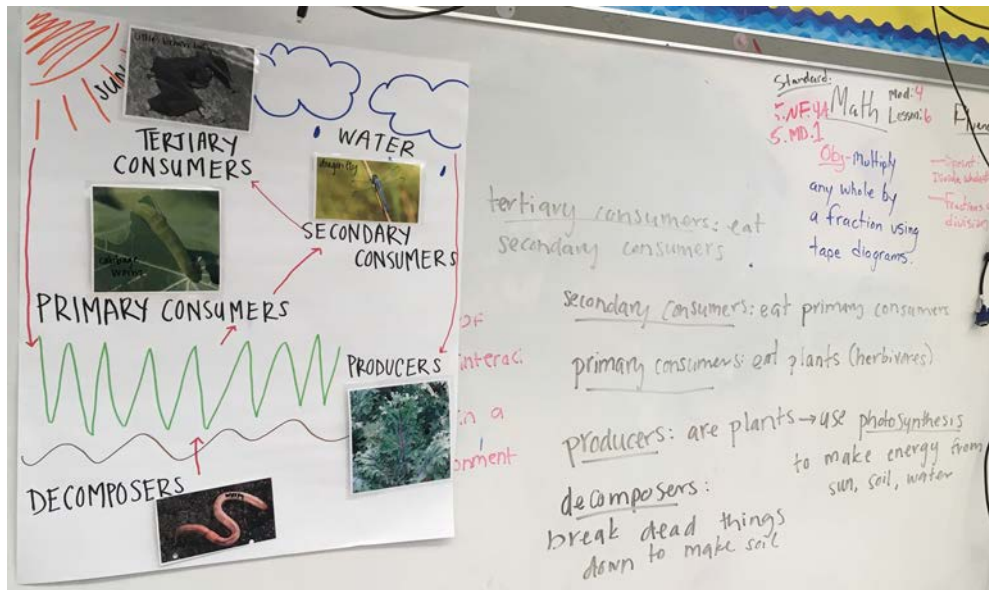 SUN
little brown bat
TERTIARY
CONSUMERS
WATER
dragonfly
SECONDARY
CONSUMERS
cabbage
worm
PRIMARY CONSUMERS
PRODUCERS
DECOMPOSERS
worm
of
interaci
in a
onment
tertiary consumers: eat
secondary consumers
secondary consumers: eat primary consumers
primary consumers: eat plants (herbivores)
producers: are plants → use photosynthesis
to make energy from
sun, soil, water
decomposers:
break dead things
down to make soil
Standard:
5.NF.4A
5.MD.1
Math
Mod: 4
Lesson: 6
Obj- Multiply
any whole by
a fraction using
tape diagrams.
Fluen
- Sprint:
Divide whole
- Fractions
division